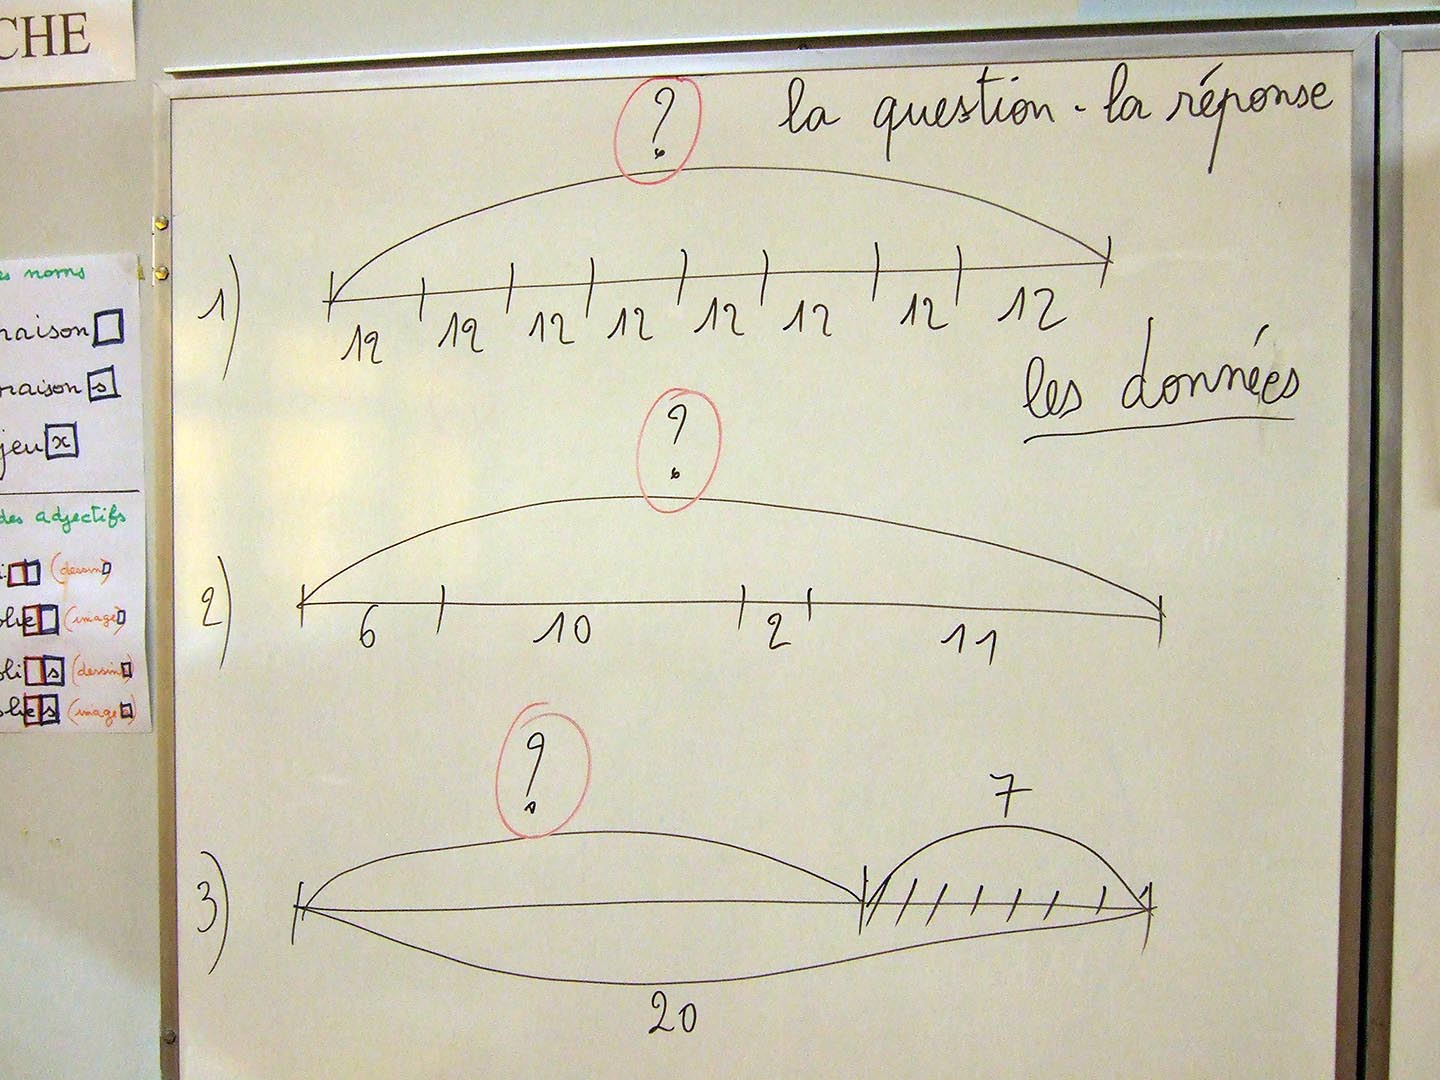 CHE
la question - la réponse
?
1)
12 12 12 12 12 12 12 12
les données
?
2)
6 10 2 11
?
7
3)
20
es noms
raison
raison s
jeu x
des adjectifs
(dessin)
olie (image)
oli s (dessin)
olies (image)